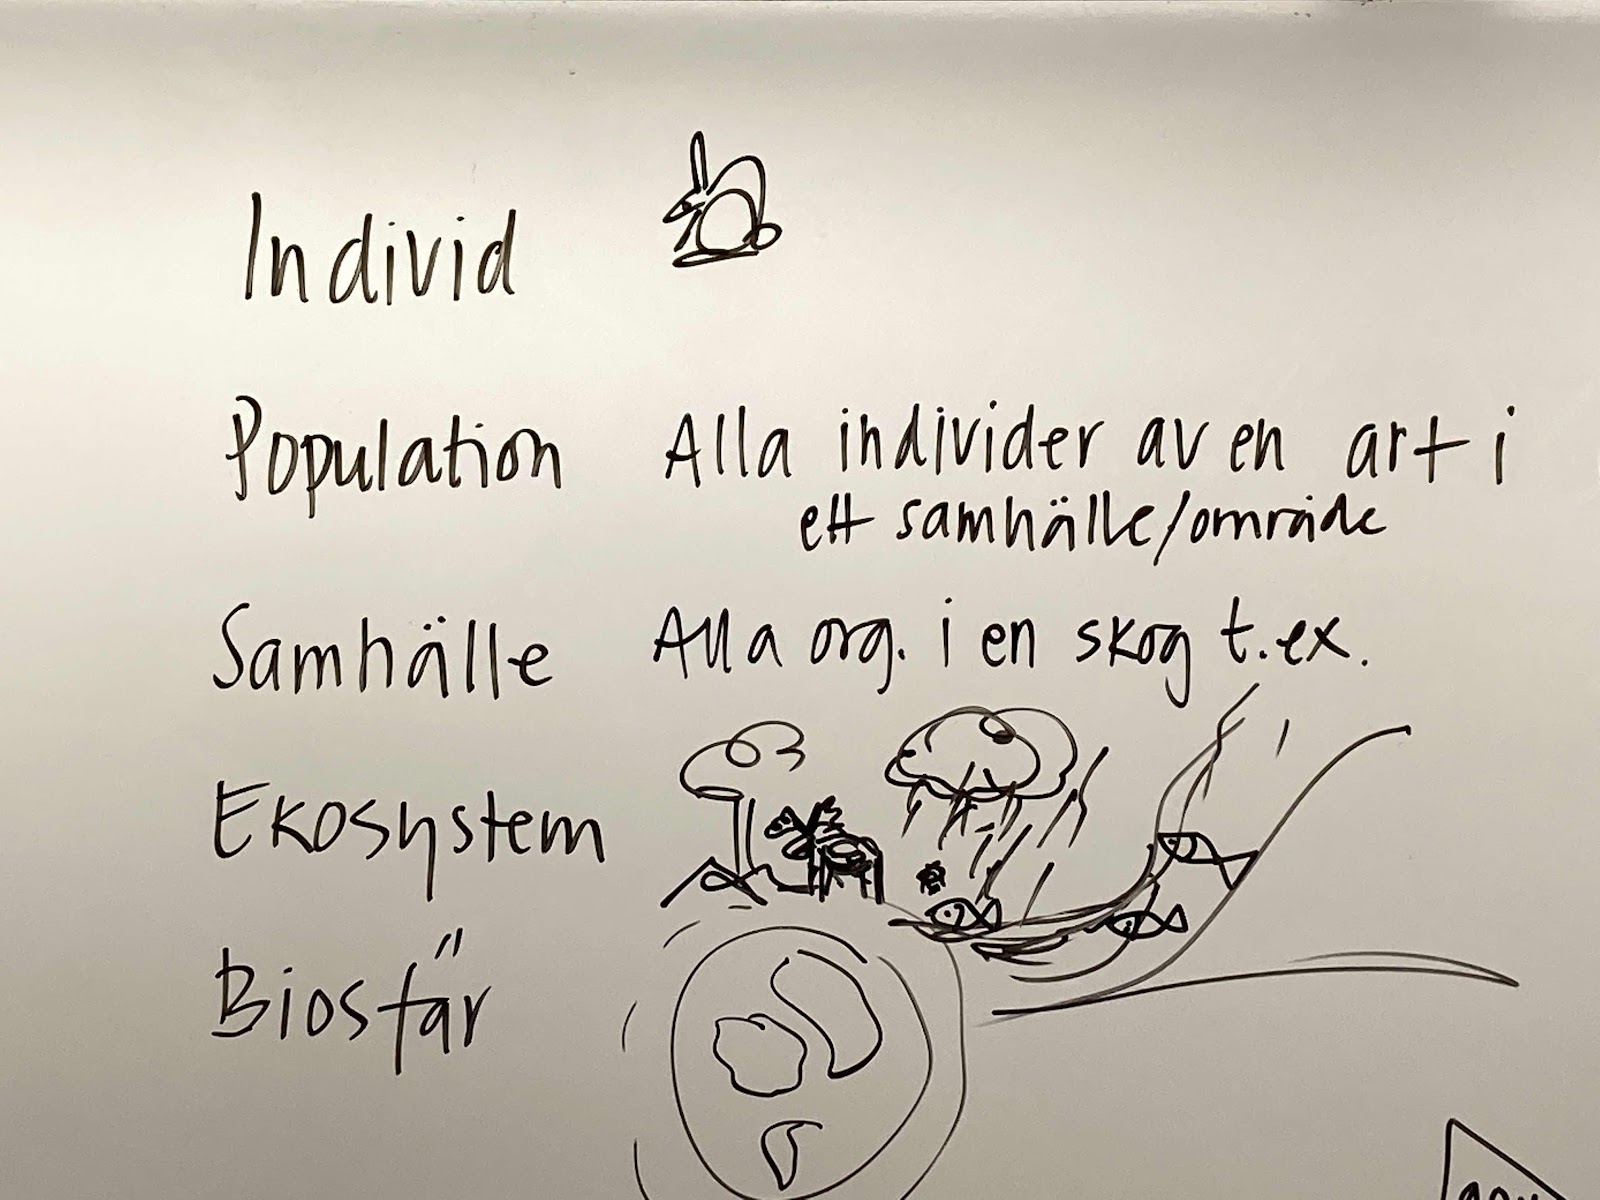 Individ
Population Alla individer av en art i
ett samhälle/område
Samhälle Alla org. i en skog t.ex.
Ekosystem
Biosfär